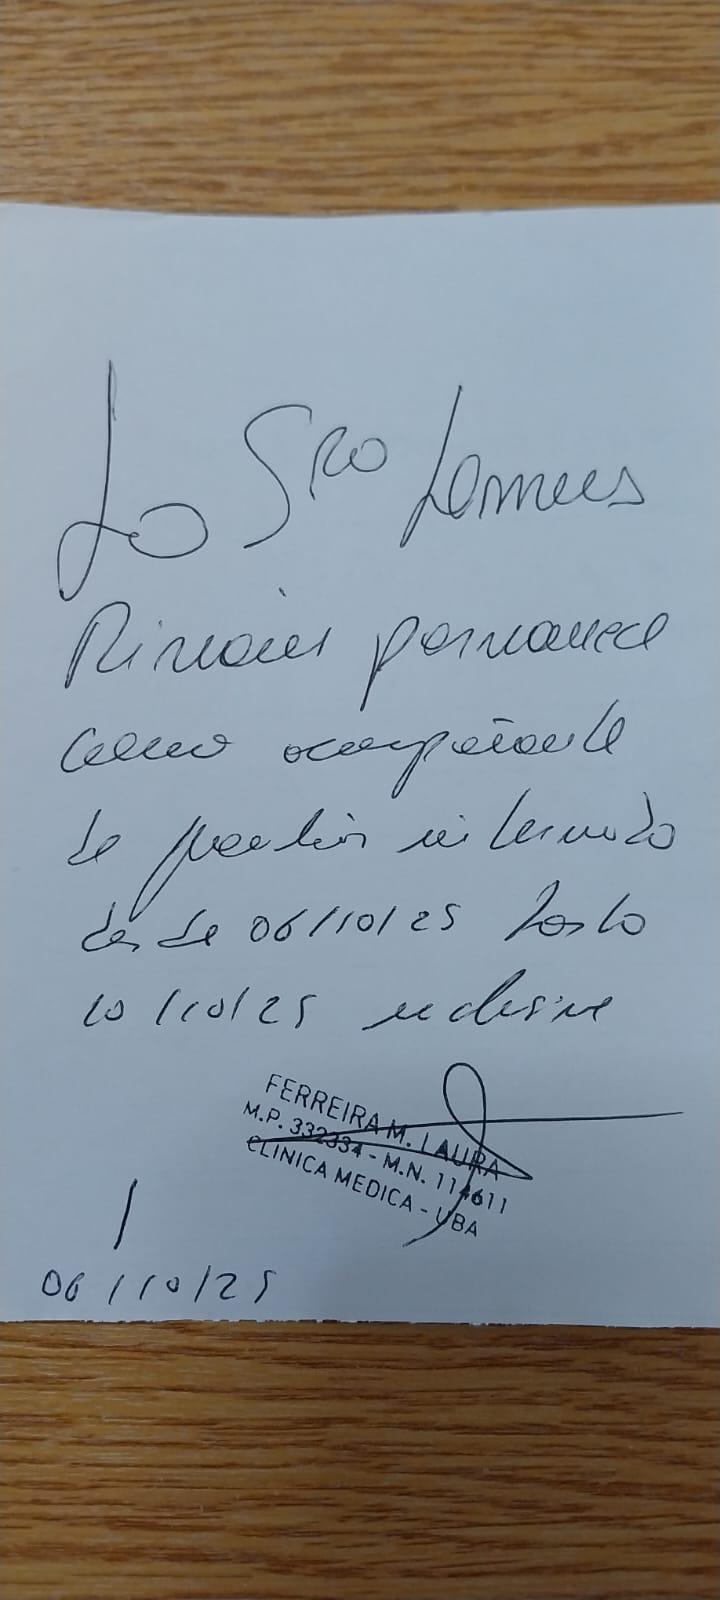 La Sra
permanece
como acompañante
de paciente internado
desde 06/10/25 hasta
10/10/25 inclusive
FERREIRA M. LAURA
M.P. 332334 - M.N. 114611
CLINICA MEDICA - UBA
06/10/25